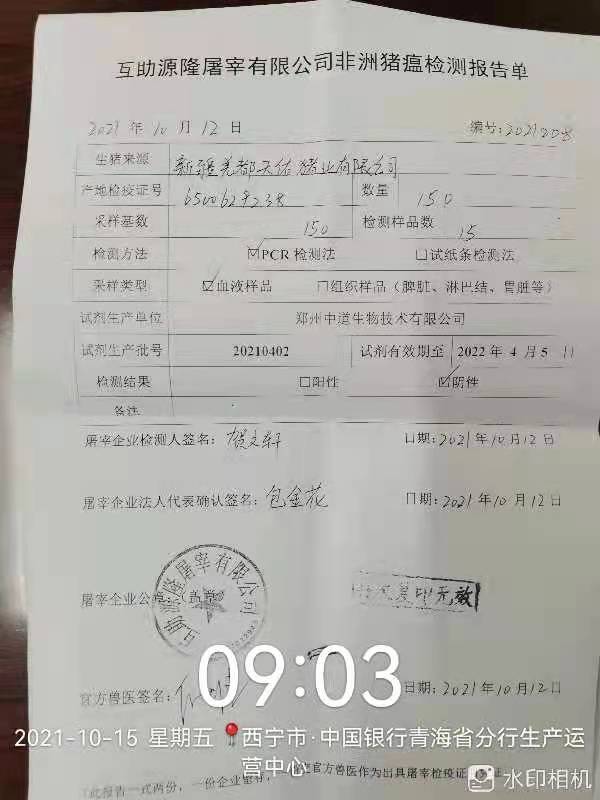 互助源隆屠宰有限公司非洲猪瘟检测报告单
2021 年 10 月 12 日 编号:2021208
生猪来源 新疆羌都天佑猪业有限公司
产地检疫证号 6500629238 数量 150
采样基数 150 检测样品数 15
检测方法 ☑PCR 检测法 □试纸条检测法
采样类型 ☑血液样品 □组织样品（脾脏、淋巴结、胃脏等）
试剂生产单位 郑州中道生物技术有限公司
试剂生产批号 20210402 试剂有效期至 2022 年 4 月 5 日
检测结果 □阳性 ☑阴性
备注
屠宰企业检测人签名：贺文轩 日期：2021 年 10 月 12
屠宰企业法人代表确认签名：包金花 日期：2021 年 10 月 12
屠宰企业公章（盖章）
互助源隆屠宰有限公司
复印无效
09:03
官方兽医签名： 日期：2021 年 10 月 12
2021-10-15 星期五 西宁市·中国银行青海省分行生产运
营中心
（此报告一式两份，一份企业留存 官方兽医作为出具屠宰检疫证
水印相机